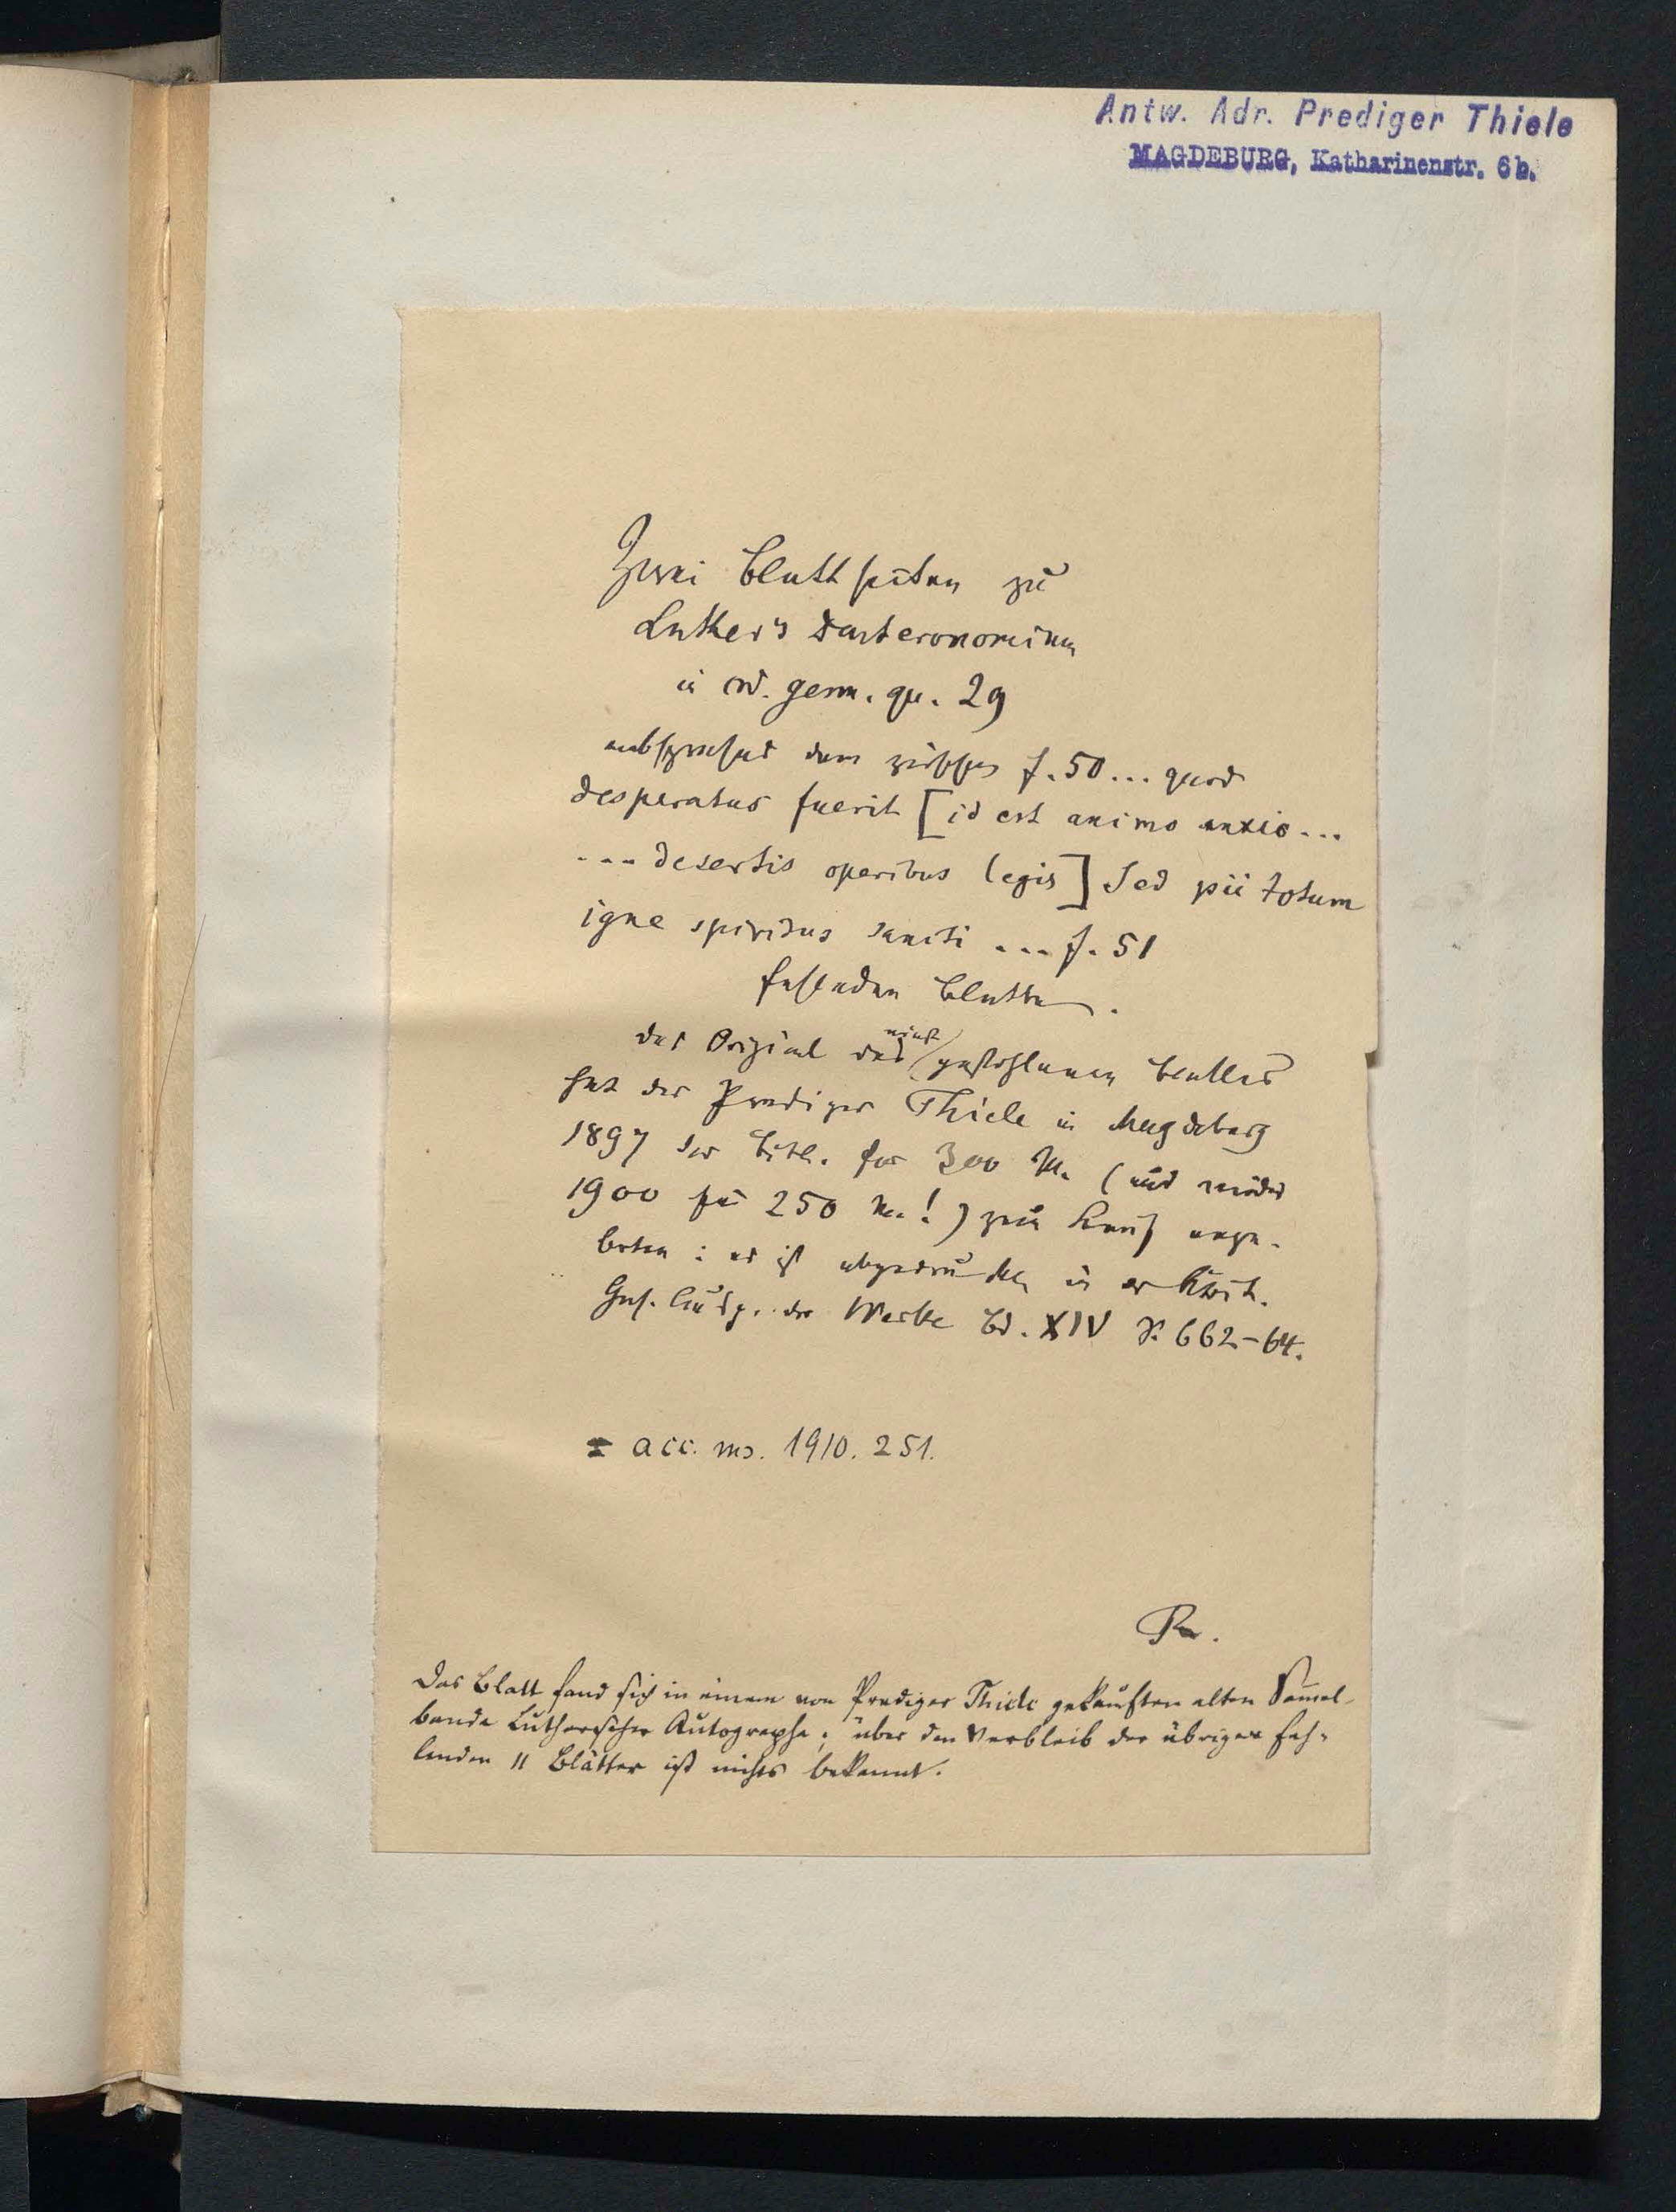 Antw. Adr. Prediger Thiele
MAGDEBURG, Katharinenstr. 6b.
Zwei Blattseiten zu
Luther's Deuteronomium
in cod. germ. qu. 29
entsprechend dem zwischen f. 50 ... quod
desperatus fuerit [id est animo anxio...
... desertis operibus legis] Sed pii totum
igne spiritus sancti ... f. 51
fehlenden Blatte.
das Original des einst gestohlenen Blattes
hat der Prediger Thiele in Magdeburg
1897 der Bibl. für 300 M. (und wieder
1900 für 250 M.!) zum Kauf ange-
boten: es ist abgedruckt in der Krit.
Ges. Ausg. der Werke Bd. XIV S. 662-64.
= acc. ms. 1910. 251.
R.
Das Blatt fand sich in einem von Prediger Thiele gekauften alten Sammel-
bande Lutherscher Autographe; über den Verbleib der übrigen feh-
lenden 11 Blätter ist nichts bekannt.